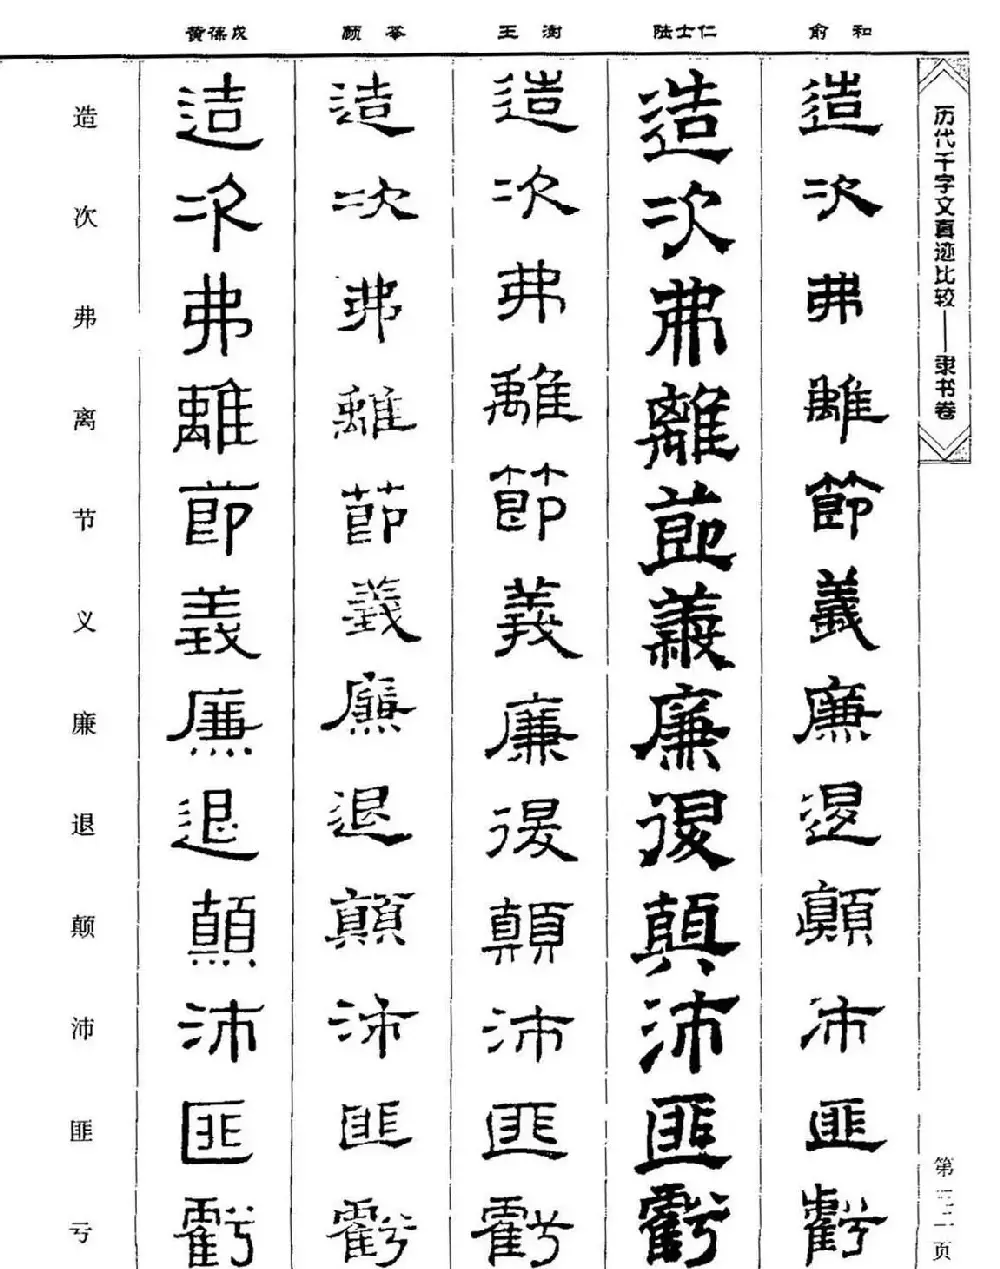 黄葆戉 颜苓 王澍 陆士仁 俞和
历代千字文真迹比较——隶书卷
造 造 造 造 造 造
次 次 次 次 次 次
弗 弗 弗 弗 弗 弗
离 離 離 離 離 離
节 節 節 節 節 節
义 義 義 義 義 義
廉 廉 廉 廉 廉 廉
退 退 退 復 復 退
颠 顛 顛 顛 顛 顛
沛 沛 沛 沛 沛 沛
匪 匪 匪 匪 匪 匪
亏 虧 虧 虧 虧 虧